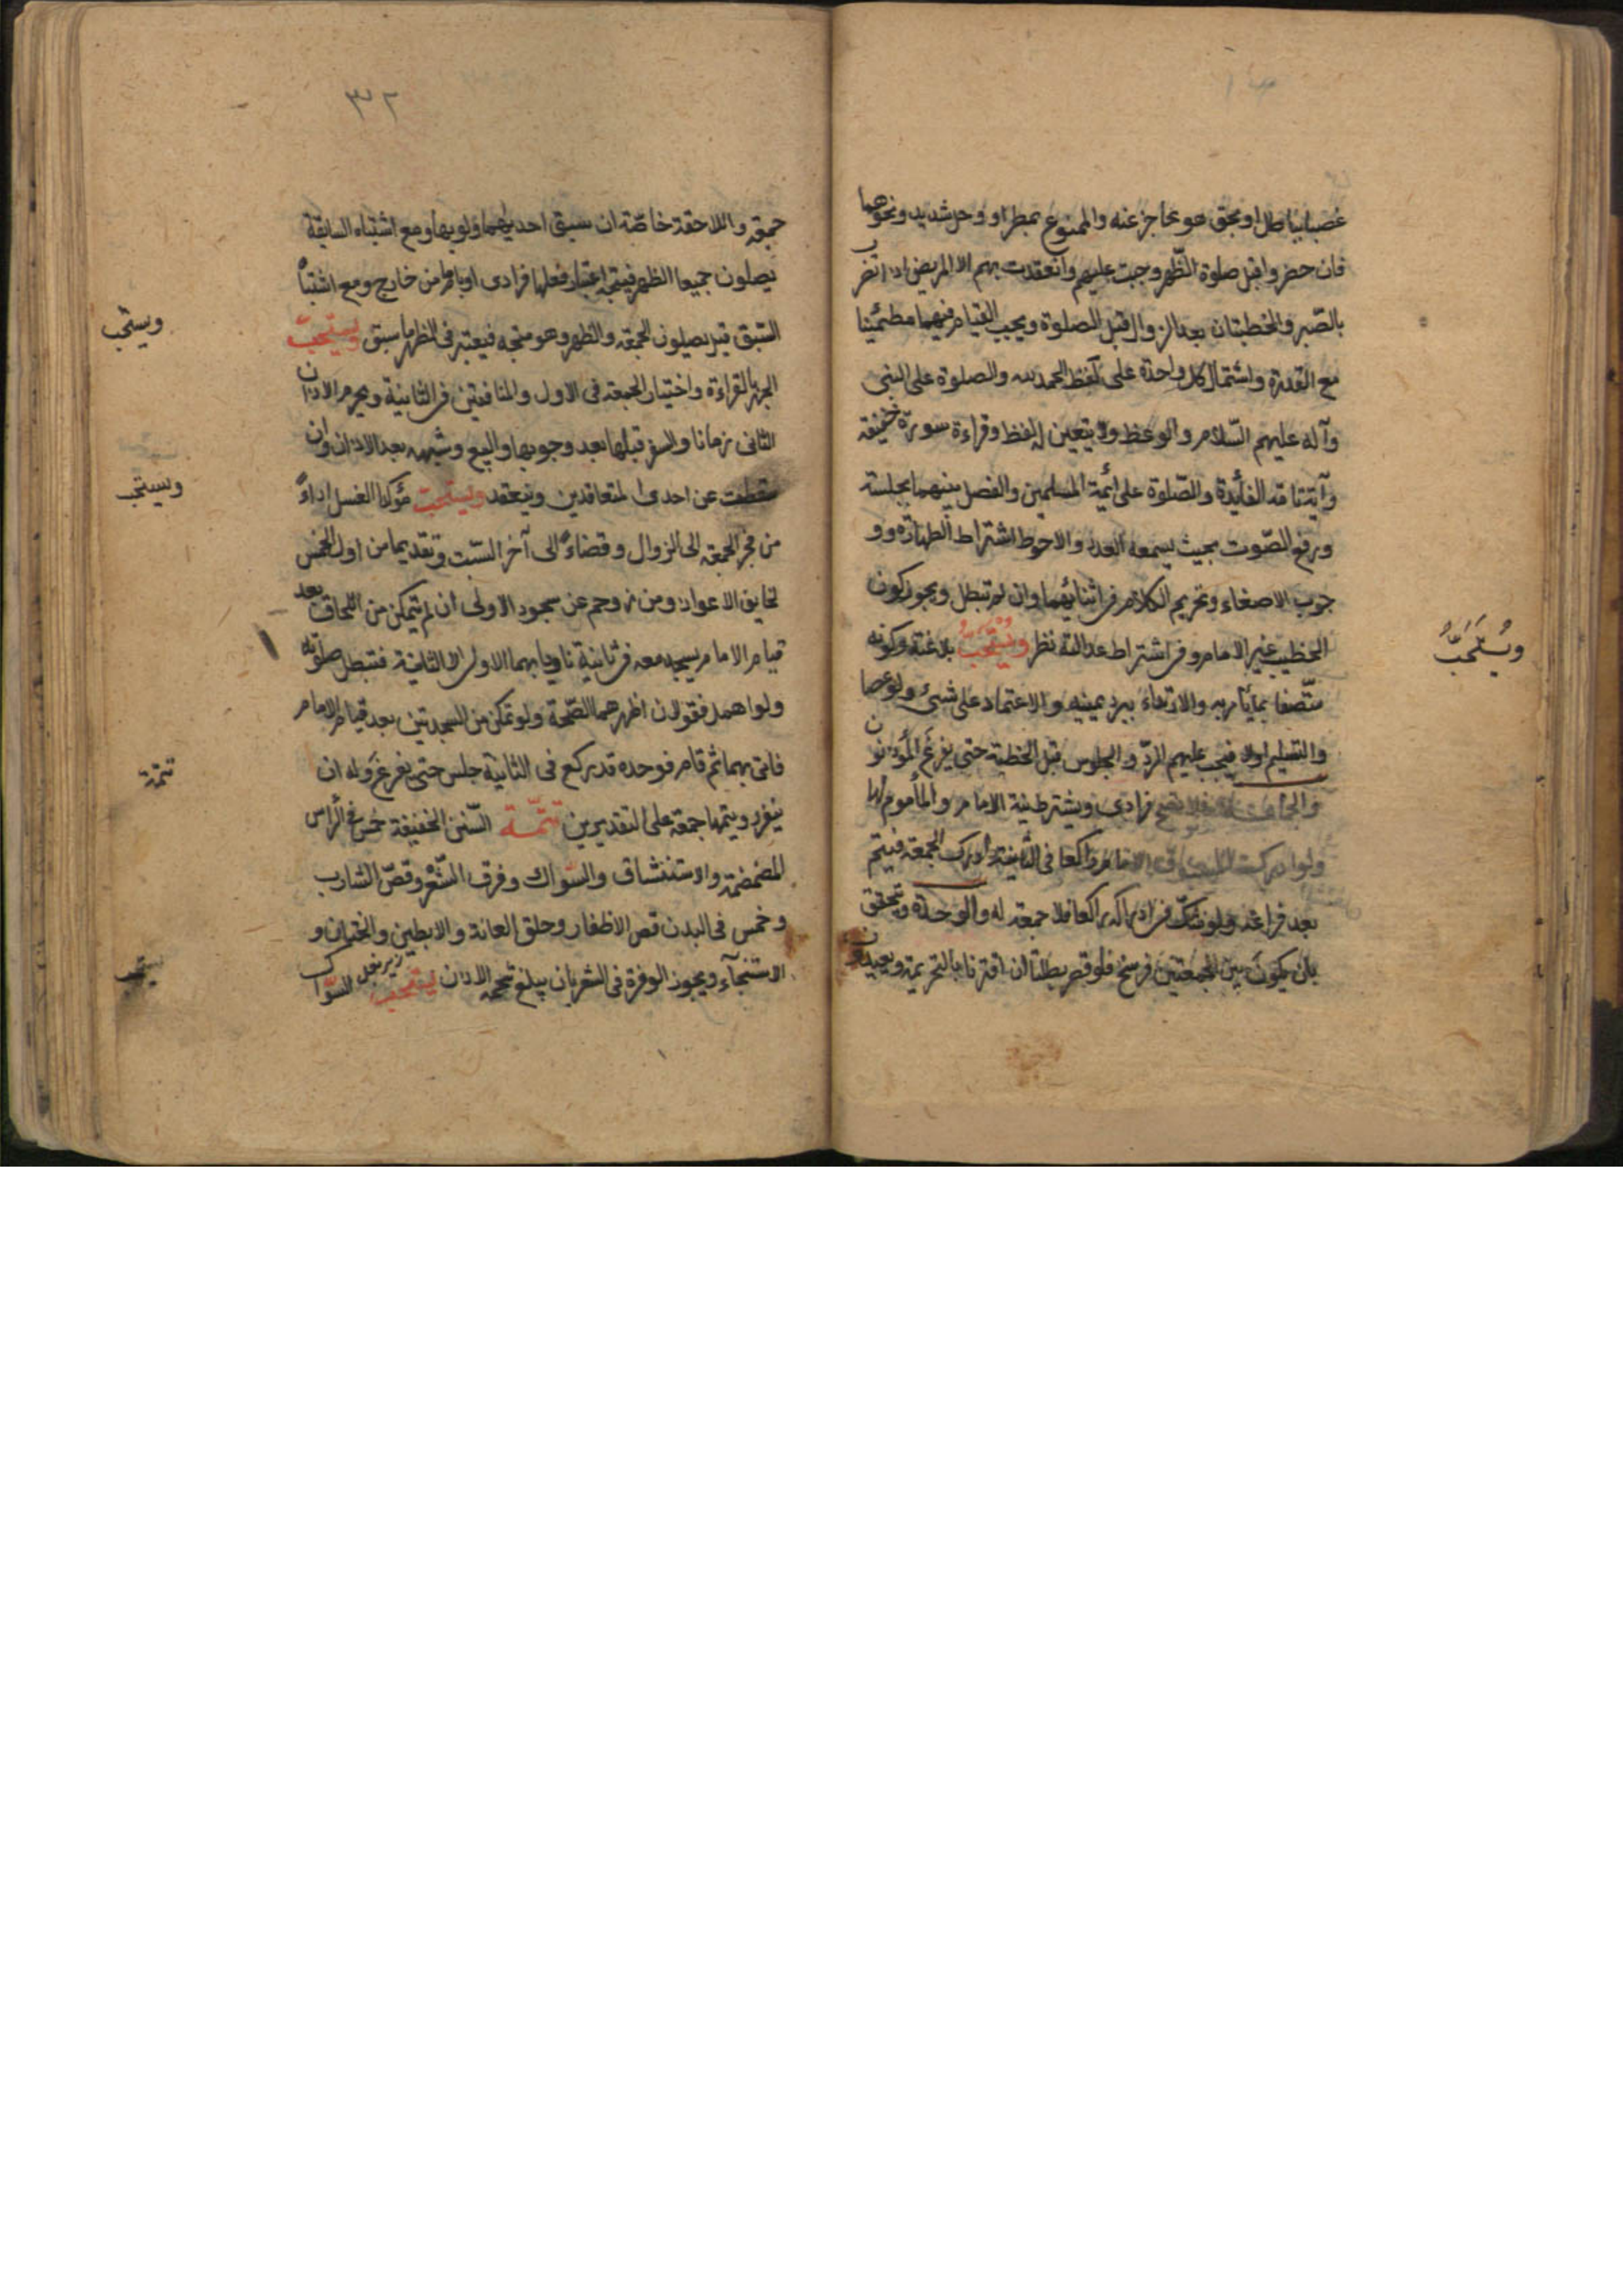 غصبا بباطل او بحق هو عاجز عنه والممنوع بمطر او وحل شديد ونحوهما
فان حضروا قبل صلوة الظهر وجبت عليهم وانعقدت بهم الا المريض اذا تضر
بالصبر والخطبتان بعد الزوال قبل الصلوة ويجب القيام فيهما مطمئنا
مع القدرة واشتمال كل واحدة على لفظ الحمد لله والصلوة على النبي
وآله عليهم السلام والوعظ ولا يتعين له لفظ وقراءة سورة خفيفة
وآية تامة الفائدة والصلوة على ائمة المسلمين والفصل بينهما بجلسة
ورفع الصوت بحيث يسمعه العدد والاحوط اشتراط الطهارة وو
جوب الاصغاء وتحريم الكلام في اثنائهما وان لم تبطل ويجوز كون
الخطيب غير الامام وفي اشتراط عدالته نظر ويُسْتَحَبُّ بلاغته وكونه
ويُسْتَحَبُّ
متصفا بما يأمر به والارتداء ببرد يمنيه والاعتماد على شيء ولو عصا
والتسليم اولا فيجب عليهم الرد والجلوس قبل الخطبة حتى يفرغ المؤذنون
والجماعة فلا تصح فرادى ويشترط نية الامام والمأموم لها
ولو ادركت الامام راكعا في الثانية ادرك الجمعة فيتم
بعد فراغه ولو شك في ادراكه راكعا فلا جمعة له والوحدة ويتحقق
بان يكون بين الجمعتين فرسخ فلو قصر بطلتا ان اقترنا بالتحريمة ويعيدون
٣٢
جمعة واللاحقة خاصة ان سبق احديهما ولو بها ومع اشتباه السابقة
يصلون جميعا الظهر فيتجه اعتبار فعلها فرادى او بامام من خارج ومع اشتباه
السبق قيل يصلون الجمعة والظهر وهو متجه فيعتبر في الظهر ما سبق ويستحب
ويستحب
الجهر بالقراءة واختيار الجمعة في الاول والمنافقين في الثانية ويحرم الاذان
الثاني زمانا والسفر قبلها بعد وجوبها والبيع وشبهه بعد الاذان وان
سقطت عن احدى المتعاقدين وينعقد ويستحب مؤكدا الغسل اداءً
ويستحب
من فجر الجمعة الى الزوال وقضاءً الى آخر السبت وتقديما من اول الخميس
لخايف الاعواز ومن زوحم عن سجود الاولى ان لم يتمكن من اللحاق بعد
قيام الامام يسجد معه في ثانية ناويا بهما الاولى لا الثانية فتبطل صلوته
ولو اهمل فقولان اظهرهما الصحة ولو تمكن من السجدتين بعد قيام الامام
فاتى بهما ثم قام فوجده قد ركع في الثانية جلس حتى يفرغ وله ان
تتمة
ينفرد ويتمها جمعة على التقديرين تتمّة السنن الحنيفية خمس في الرأس
المضمضة والاستنشاق والسواك وفرق الشعر وقص الشارب
وخمس في البدن قص الاظفار وحلق العانة والابطين والختان و
الاستنجآء ويجوز الوفرة في الشعر بان يبلغ شحمة الاذن يستحب السواك
يستحب